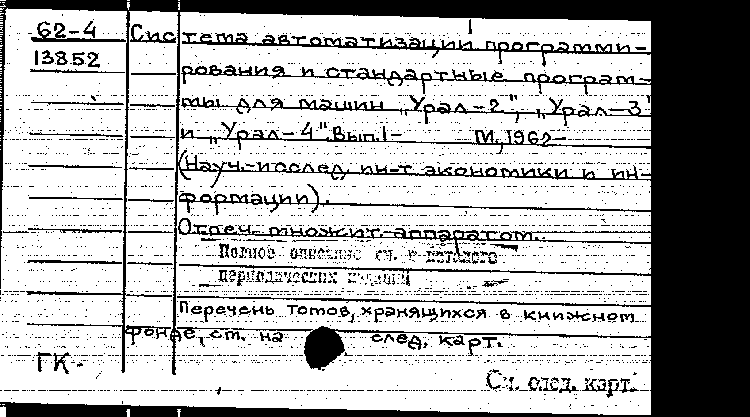 62-4 Система автоматизации программи-
13852 рования и стандартные програм-
мы для машин „Урал-2", „Урал-3"
и „Урал-4". Вып.1- М., 1962-
(Науч.-исслед. ин-т экономики и ин-
формации).
Отпеч. множит. аппаратом.
Полное описание см. в каталоге
периодических изданий
Перечень томов, хранящихся в книжном
фонде, см. на след. карт.
ГК-
См. след. карт.